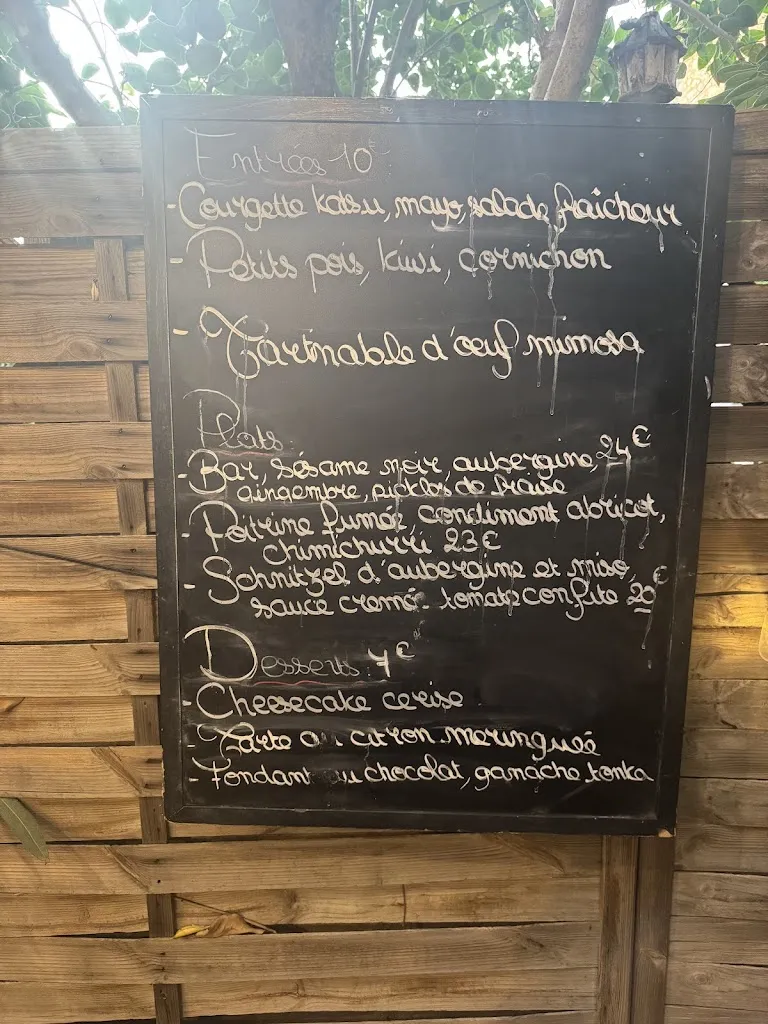 Entrées 10€
- Courgette katsu, mayo, salade fraîcheur
- Petits pois, kiwi, cornichon
- Tartinable d'œuf mimosa
Plats:
- Bar, sésame noir, aubergine, 24€
gingembre, pickles de fraise
- Poitrine fumée, condiment abricot,
chimichurri 23€
- Schnitzel d'aubergine et miso,
sauce crème - tomate confite 20€
Desserts: 7€
- Cheesecake cerise
- Tarte au citron meringuée
- Fondant au chocolat, ganache tonka